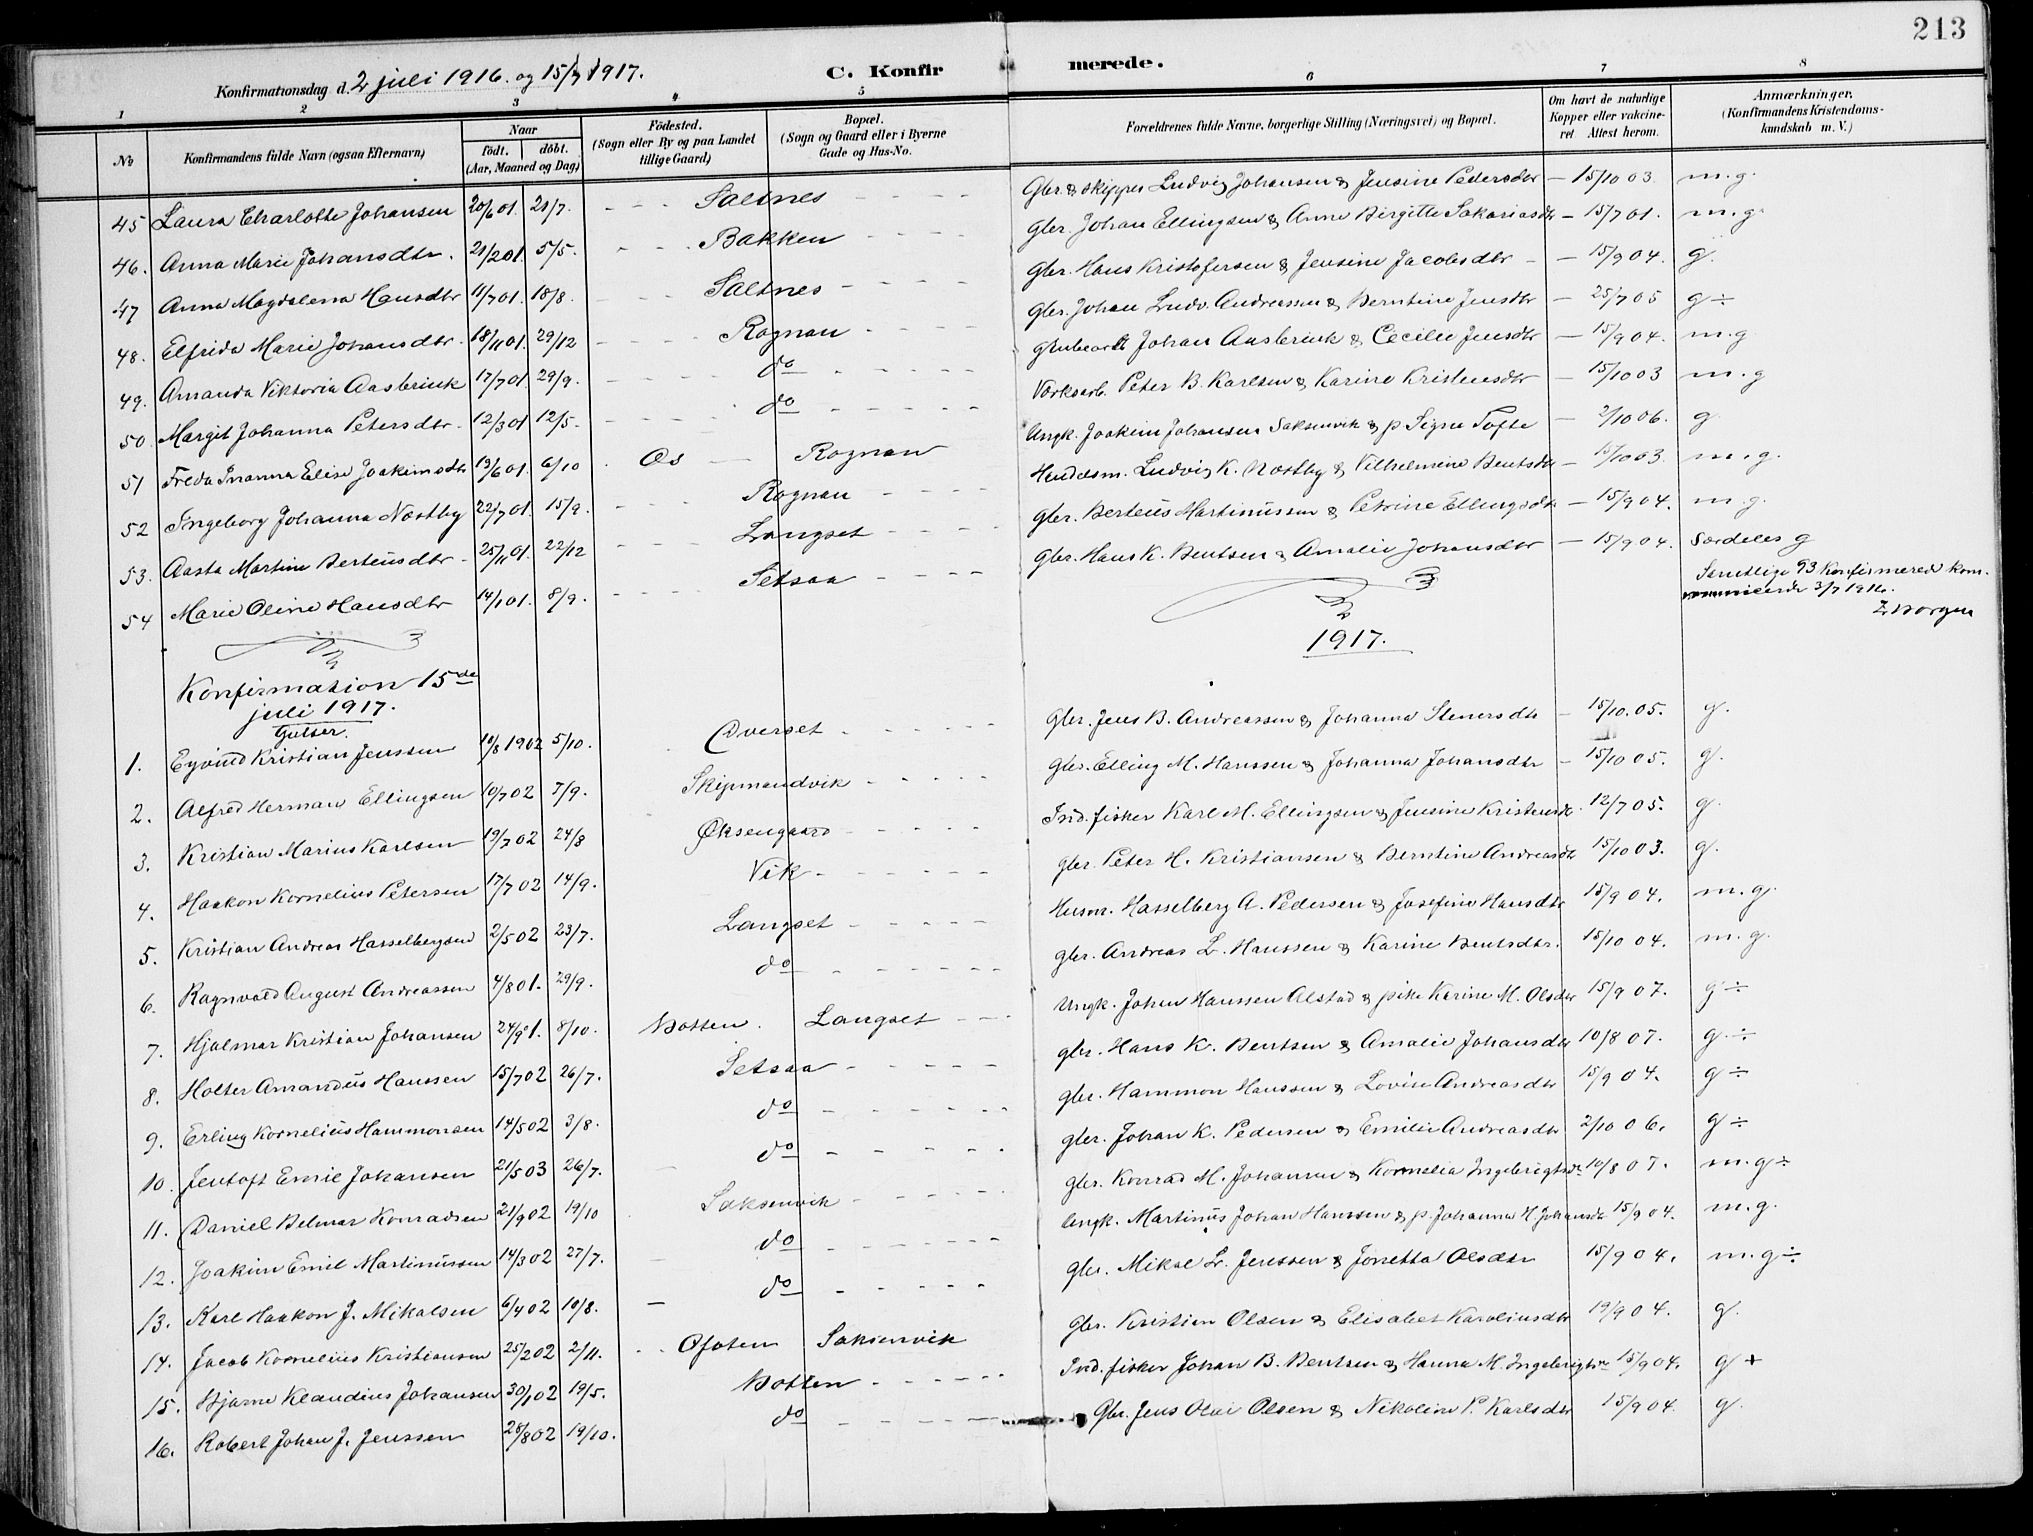 213
Konfirmationsdag d. 2 juli 1916. og 15/7 1917.
C. Konfirmerede.
1 2 3 4 5 6 7 8
No
Konfirmandens fulde Navn (ogsaa Efternavn)
Naar
födt. döbt.
(Aar, Maaned og Dag)
Födested.
(Sogn eller By og paa Landet
tillige Gaard)
Bopæl.
(Sogn og Gaard eller i Byerne
Gade og Hus-No.
Forældrenes fulde Navne, borgerlige Stilling (Næringsvei) og Bopæl.
Om havt de naturlige
Kopper eller vakcine-
ret Attest herom.
Anmærkninger.
(Konfirmandens Kristendoms-
kundskab m. V.)
45 Laura Charlotte Johansen 20/6 01. 21/7. Saltnes Gbr. & skipper Ludvig Johansen & Jensine Pedersdtr – 15/10 03. m.g.
46. Anna Marie Johansdtr. 21/2 01. 5/5. Bakken Gbr. Johan Ellingsen & Anne Birgitte Sakariasdtr – 15/7 01. m.g.
47 Anna Magdalena Hansdtr 11/7 01. 18/8. Saltnes Gbr. Hans Kristofersen & Jensine Jacobsdtr – 15/9 04. g.
48. Elfrida Marie Johansdtr. 18/11 01. 29/12 Rognan Gbr. Johan Ludv. Andreassen & Berntine Jensdtr – 25/7 05 g ÷
49. Amanda Viktoria Aasbrink 17/7 01. 29/9. do Grubearb. Johan Aasbrink & Cecilie Jensdtr – 15/9 04. m.g
50. Margit Johanna Petersdtr. 12/3 01 12/5. do Værksarb. Peter B. Karlsen & Karine Kristensdtr – 15/10 03 m.g
51 Freda Inanna Elise Joakimsdtr 19/6 01. 6/10 Os Rognan Ungk. Joakim Johansen Saksenvik & p Signe Tofte – 2/10 06. g
52 Ingeborg Johanna Næstby 22/7 01. 15/9. Rognan Handelsm. Ludvig K. Næstby & Vilhelmine Bentsdtr – 15/10 03. m.g.
53. Aasta Martine Berteusdtr 25/11 01. 22/12 Langset Gbr. Berteus Martinussen & Petrine Ellingsdtr – 15/9 04. m.g.
54 Marie Oline Hansdtr 14/1 01. 8/9. Setsaa Gbr. Hans K. Bentsen & Amalie Johansdtr – 15/9 04. Særdeles g
Samtlige 93 Konfirmerede kom-
municerede 3/7 1916.
1917.
Konfirmation 15de
juli 1917.
Gutter.
1. Eyvind Kristian Jenssen 10/8 1902 5/10. Overset Gbr. Jens B. Andreassen & Johanna Stenersdtr – 15/10. 05. g.
2. Alfred Herman Ellingsen 10/7 02 7/9. Skipmandvik Gbr. Elling M. Hanssen & Johanna Johansdtr – 15/10 05. g.
3. Kristian Marius Karlsen 19/7 02 24/8 Øksengaard Ind. fisker Karl M. Ellingsen & Jensine Kristensdtr. 12/7 05. g.
4. Haakon Kornelius Petersen 17/7 02 14/9. Vik Gbr. Peter H. Kristiansen & Berntine Andreasdtr 15/10 03. g.
5. Kristian Andreas Hasselbergsen 2/5 02 23/7. Langset Husm. Hasselberg A. Pedersen & Josefine Hansdtr 15/9 04. m.g.
6. Ragnvald August Andreassen 4/8 01. 29/9. do gbr. Andreas L. Hanssen & Karine Bentsdtr. 15/10 04. m.g.
7. Hjalmar Kristian Johansen 24/9 01. 8/10. Botten. Langset Ungk. Johan Hanssen Alstad & pike Karine M. Olsdtr 15/9 07. g ÷
8. Holter Amandus Hanssen 15/7 02 26/7. Setsaa gbr. Hans K. Bentsen & Amalie Johansdtr 10/8 07. g. ÷
9. Erling Kornelius Hammonsen 14/5 02 3/8. do gbr. Hammon Hanssen & Lovise Andreasdtr 15/9 04. g ÷
10. Jentoft Emil Johansen 21/5 03 26/7. do gbr. Johan K. Pedersen & Emilie Andreasdtr 2/10 06. g ÷
11. Daniel Delmar Konradsen 21/9 02 19/10 Saksenvik gbr. Konrad M. Johansen & Kornelia Ingebrigtsdtr 10/8 07. m.g ÷
12. Joakim Emil Martinussen 14/3 02 27/7. do Ungk. Martinus Johan Hanssen & p. Johanna H. Johansdtr 15/9 04. m.g.
13. Karl Haakon J. Mikalsen 6/4 02 10/8. do Gbr. Mikal L. Jenssen & Jonetta Olsdtr 15/9 04. m.g ÷
14. Jacob Kornelius Kristiansen 25/2 02 2/11. Ofoten Saksenvik Gbr. Kristian Olsen & Elisabet Karoliusdtr 19/9 04. g.
15. Bjarne Klaudius Johansen 30/1 02 19/5. Botten Ind. fisker Johan B. Bentsen & Hanna M. Ingebrigtsdtr 15/9 04. g +
16. Robert Johan J. Jenssen 28/8 02 19/10. do Gbr. Jens Olai Olsen & Nikoline P. Karlsdtr 15/9 04 g.